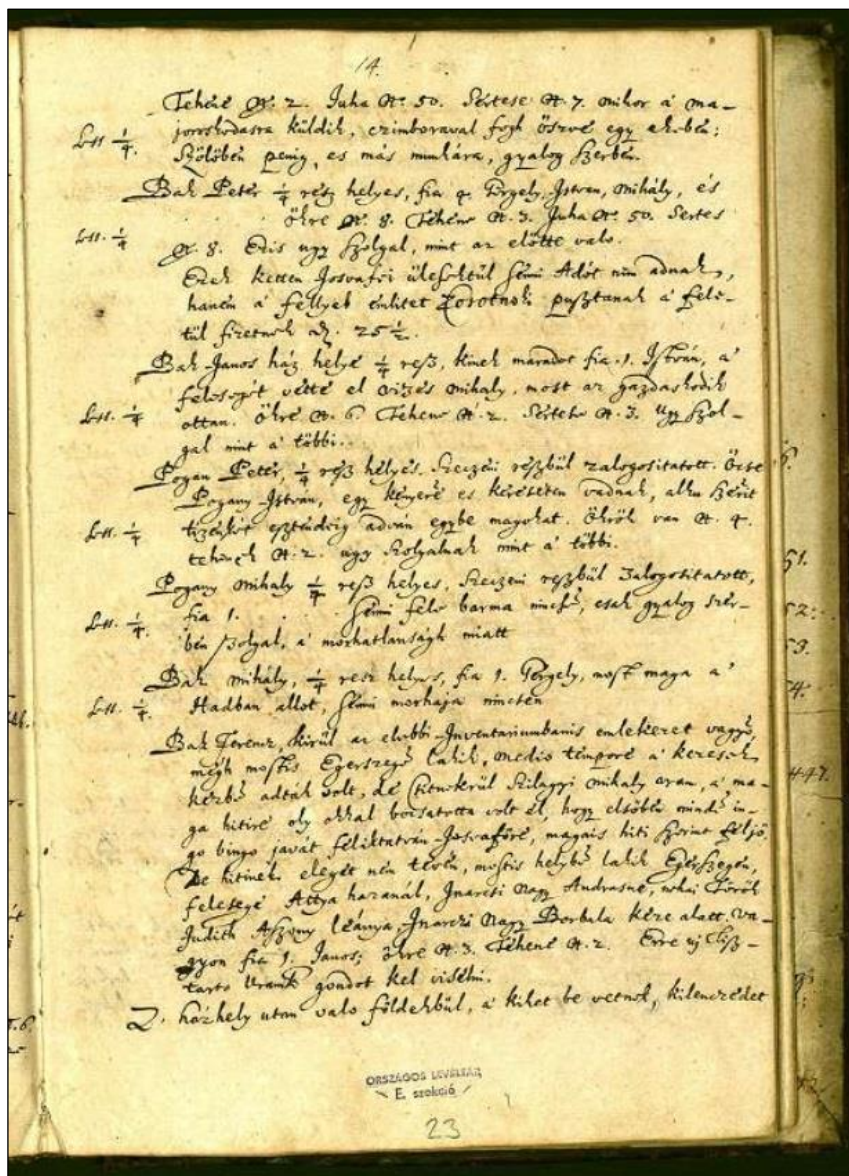 14.
Tehene Nr. 2. Juha Nr. 50. Sertese Nr. 7. mikor a ma-
jorokodasra küldik, czimboraval fogh öszve egy ekeben;
Lest 1/4.
Szölöben penig, es más munkára, gyalog szerben.
Bak Peter 1/4 resz helyes, fia 4. Gergely, Istvan, Mihály, és
ökre Nr. 8. Tehene Nr. 3. Juha Nr. 50. Sertes
Lest. 1/4
Nr. 8. Ezis ugy szolgal, mint az elötte valo.
Ezek ketten Josvafői ülesektül semi Adót nem adnak,
hanem a fellyeb emlitet Zorotnoki pusztanak a fele-
tül fizetnek 25 1/2.
Bak Janos ház helye 1/4 resz, kinek maradot fia 1. István, a'
feleseget vette el Vizes Mihaly, most az gazdaskodik
Lest. 1/4
ottan. Ökre Nr. 6. Tehene Nr. 2. Sertese Nr. 3. Ugy szol-
gal mint a' többi.
Pogan Peter, 1/4 resz helyes. Szeczeni részbül zalogositatott. Öcse
Pogany Istvan, egy kenyere es kereseten vadnak, alku szerit
Lest. 1/4
tizenket esztendeig advan egybe magokat. Ökrök van Nr. 4.
tehenek Nr. 2. ugy szolgalnak mint a' többi.
Pogany Mihaly 1/4 resz helyes, Szeczeni reszbül Zalogositatott,
fia 1. Semi fele barma nincse, csak gyalog szer-
Lest. 1/4.
ben szolgal, a' morhatlansagh miatt
Bak Mihály, 1/4 resz helyes, fia 1. Gergely, most maga a'
Lest. 1/4.
Hadban allot, semi morhaja nincsen
Bak Ferencz, kirül az elebbi Inventariumbanis emlekezet vagyo,
megh mostis Egerszege lakik, medio tempore a' keresek
kezbe adták volt, de Szilagyi Mihaly a' ma-
ga hitire oly okkal bocsatotta volt el, hogy elsöben minde in-
go bingo javát Josvafőre, magais hiti szerint feljö.
De hitinek eleget nem teven, mostis helybe lakik Egerszegen,
felesege Attya hazanál, Inarcsi Nagy Andrasne, nehai Török
Judith Aszony leánya Inarczi Nagy Borbala keze alatt. Va-
gyon fia 1. Janos; ökre Nr. 3. Tehene Nr. 2. Erre uj Tisz-
tarto Uramk gondot kel viselni.
házhely utan valo földekbül, a' kiket be vetnek, kilenczedet
ORSZÁGOS LEVÉLTÁR
E. szekció
23